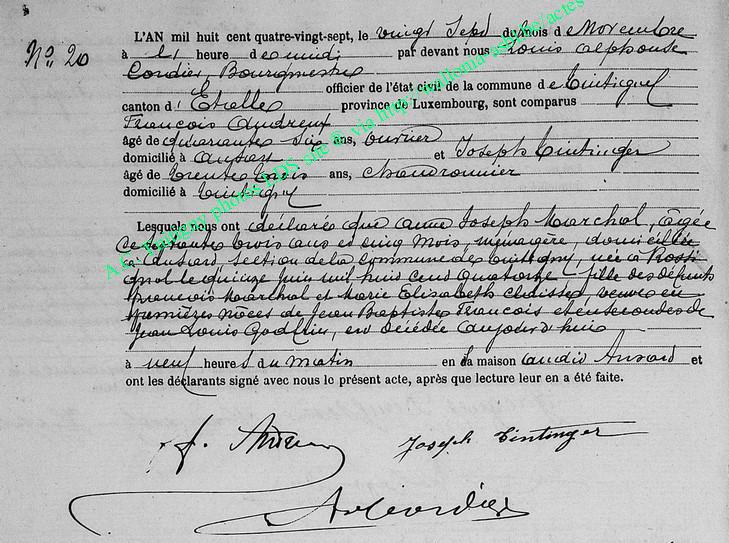 No. 20
L'AN mil huit cent quatre-vingt-sept, le vingt Sept du mois de Novembre
à heure de midi par devant nous Louis Alphonse
Cordier, Bourgmestre
officier de l'état civil de la commune de Tintigny
canton d'Etalle province de Luxembourg, sont comparus
François Andreux
âgé de quarante six ans, ouvrier
domicilié à Ansart et Joseph Tintinger
âgé de trente trois ans, chaudronnier
domicilié à Tintigny
Lesquels nous ont déclaré que Anne Joseph Marchal, âgée
de trois ans et cinq mois, ménagère, domiciliée
à Ansard section de la Commune de Tintigny, née à Rossi
gnol le quinze Juin mil huit cent quatorze fille des défunts
François Marchal et Marie Elisabeth veuve en
premières nôces de Jean Baptiste François et en secondes de
Jean Louis est décédée aujourd'hui
à neuf heures du matin en la maison Ansard et
ont les déclarants signé avec nous le présent acte, après que lecture leur en a été faite.
Joseph Tintinger
A.E. Tintigny photos LDS, site © via http://wallonia-asbl.be/actes